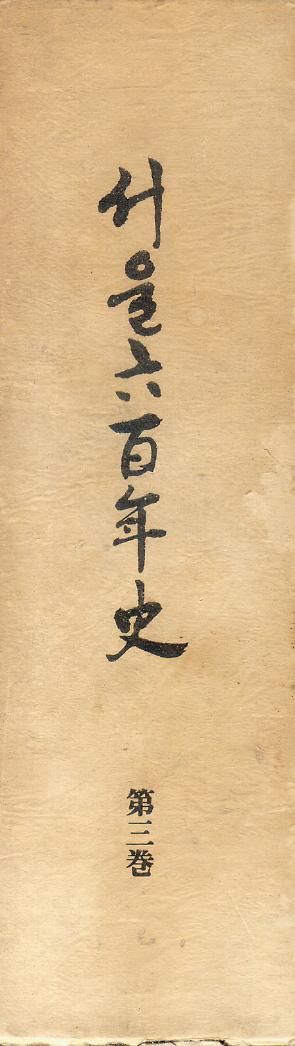 서울六百年史
第三卷